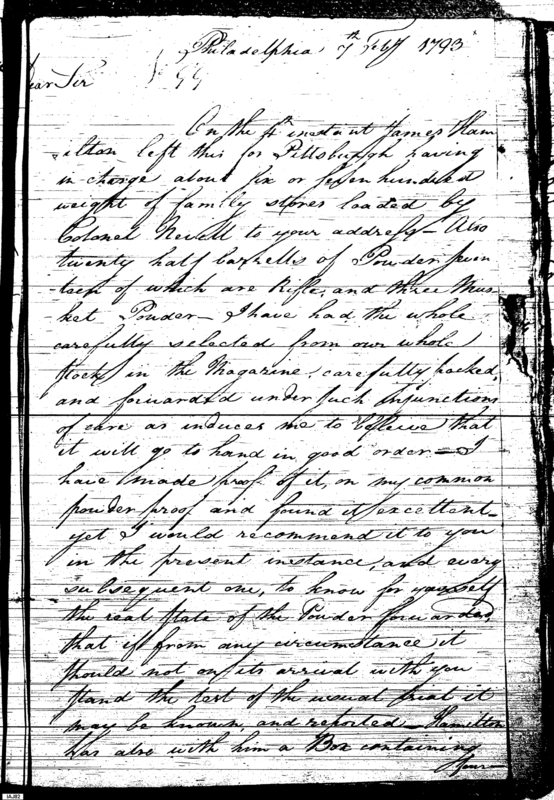 Philadelphia 7th Feby 1793
Dear Sir
On the 4th instant James Ham
-ilton left this for Pittsburgh having
in charge about six or seven hundred
weight of family stores loaded by
Colonel Nevill to your address - Also
twenty half barrells of Powder seven
-teen of which are Rifle, and three Mus
-ket Powder - I have had the whole
carefully selected from our whole
stock in the Magazine, carefully packed,
and forwarded under such injunctions
of care as induces me to believe that
it will go to hand in good order - I
have made proof of it, on my common
powder proof and found it excellent -
yet I would recommend it to you
in the present instance, and every
subsequent one, to know for yourself
the real state of the Powder forwarded,
that if from any circumstance it
should not on its arrival with you
stand the test of the usual trial it
may be known, and reported - Hamilton
has also with him a Box containing
IAJ82